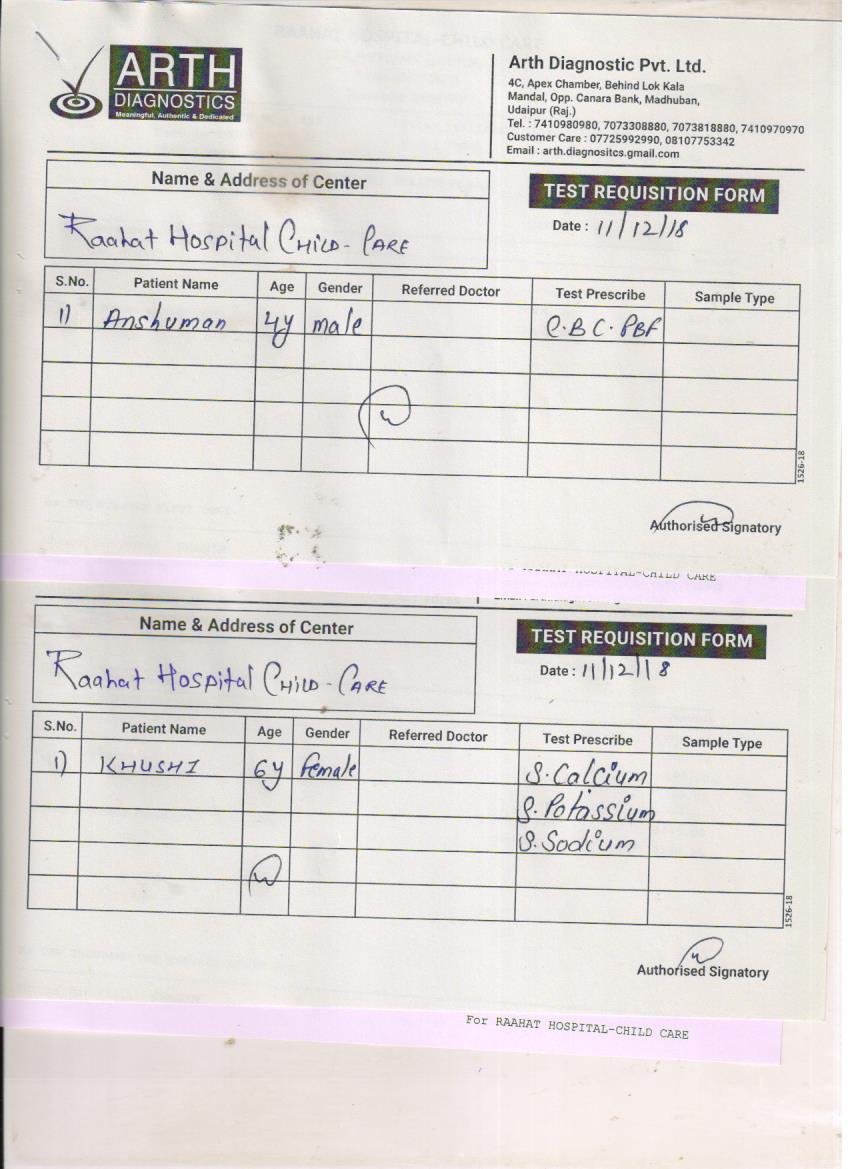 ARTH
DIAGNOSTICS
Meaningful, Authentic & Dedicated
Arth Diagnostic Pvt. Ltd.
4C, Apex Chamber, Behind Lok Kala
Mandal, Opp. Canara Bank, Madhuban,
Udaipur (Raj.)
Tel. : 7410980980, 7073308880, 7073818880, 7410970970
Customer Care : 07725992990, 08107753342
Email : arth.diagnositcs.gmail.com
Name & Address of Center
Raahat Hospital CHILD-CARE
TEST REQUISITION FORM
Date : 11/12/18
S.No. Patient Name Age Gender Referred Doctor Test Prescribe Sample Type
1) Anshuman 4y male C.B.C. PBF
1526-18
Authorised Signatory
HOSPITAL-CHILD CARE
Name & Address of Center
Raahat Hospital CHILD-CARE
TEST REQUISITION FORM
Date : 11/12/18
S.No. Patient Name Age Gender Referred Doctor Test Prescribe Sample Type
1) KHUSHI 6y female S. Calcium
S. Potassium
S. Sodium
1526-18
Authorised Signatory
For RAAHAT HOSPITAL-CHILD CARE